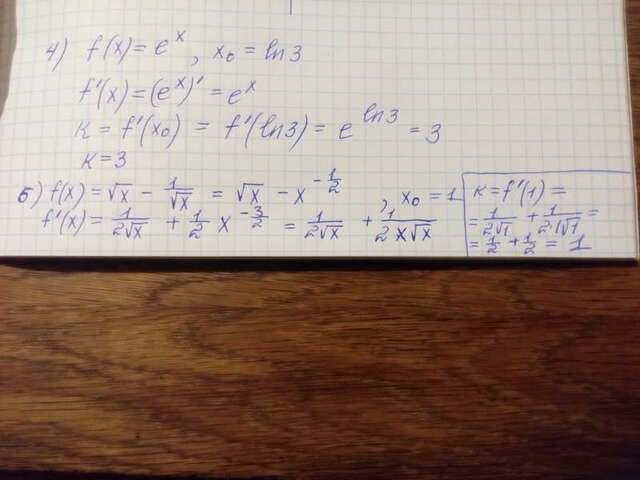 4) f(x) = e^x , x₀ = ln 3
f'(x) = (e^x)' = e^x
к = f'(x₀) = f'(ln 3) = e^(ln 3) = 3
к = 3
6) f(x) = √x − 1/√x = √x − x^(−1/2) , x₀ = 1
f'(x) = 1/(2√x) + 1/2 x^(−3/2) = 1/(2√x) + 1/(2x√x)
к = f'(1) =
= 1/(2√1) + 1/(2·1√1) =
= 1/2 + 1/2 = 1